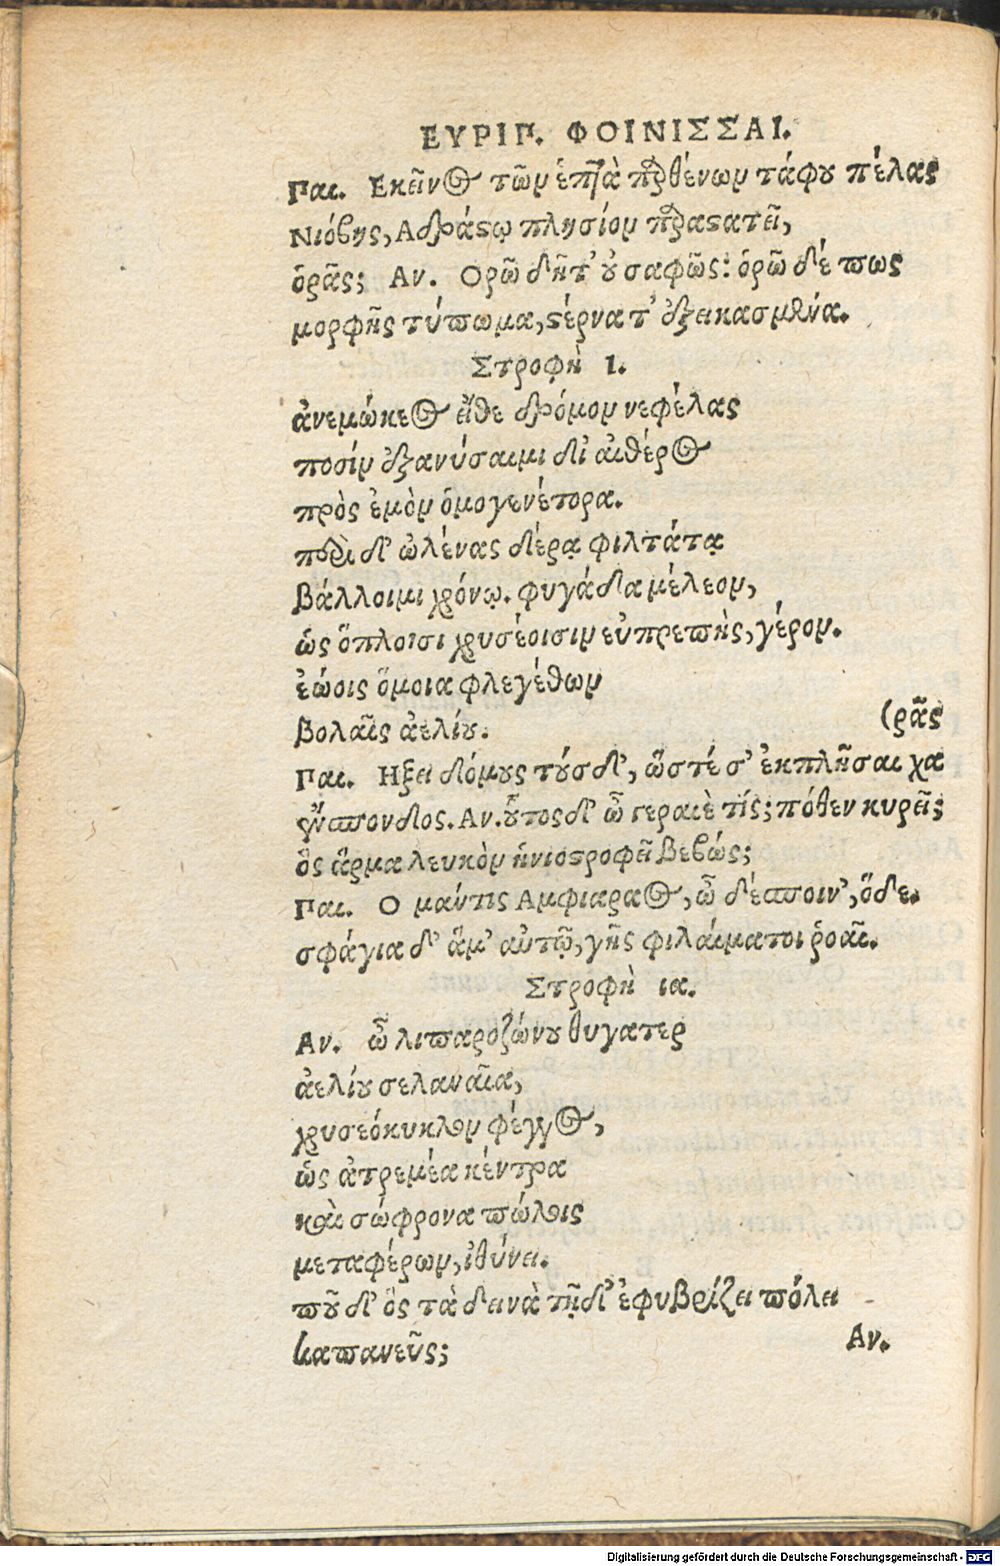 ΕΥΡΙΠ. ΦΟΙΝΙΣΣΑΙ.
Παι. Εκεῖνος τῶν ἑπτὰ παρθένων τάφου πέλας
Νιόβης, Αδράστῳ πλησίον παραστατεῖ,
ὁρᾷς; Αν. Ορῶ δῆτ' οὐ σαφῶς: ὁρῶ δέ πως
μορφῆς τύπωμα, στέρνα τ' ἐξεικασμένα.
Στροφὴ Ι.
ἀνεμώκεος εἴθε δρόμον νεφέλας
ποσὶν ἐξανύσαιμι δι' αἰθέρος
πρὸς ἐμὸν ὁμογενέτορα.
περὶ δ' ὠλένας δέρᾳ φιλτάτᾳ
βάλλοιμι χρόνῳ. φυγάδα μέλεον,
ὡς ὅπλοισι χρυσέοισιν εὐπρεπὴς, γέρον.
ἑώοις ὅμοια φλεγέθων
βολαῖς ἀελίου. (ρᾶς
Παι. Ηξει δόμους τούσδ', ὥστέ σ' ἐκπλῆσαι χα
ἔνσπονδος. Αν. οὗτος δ' ὦ γεραιὲ τίς; πόθεν κυρεῖ;
ὃς ἅρμα λευκὸν ἡνιοστροφεῖ βεβώς;
Παι. Ο μάντις Αμφιάραος, ὦ δέσποιν', ὅδε.
σφάγια δ' ἅμ' αὐτῷ, γῆς φιλαίματοι ῥοαῖ.
Στροφὴ ια.
Αν. ὦ λιπαροζώνου θυγατερ
ἀελίου σελαναῖα,
χρυσεόκυκλον φέγγος,
ὡς ἀτρεμέα κέντρα
καὶ σώφρονα πώλοις
μεταφέρων, ἰθύνει.
ποῦ δ' ὃς τὰ δεινὰ τῇδ' ἐφυβρίζει πόλει
Καπανεῦς; Αν.
Digitalisierung gefördert durch die Deutsche Forschungsgemeinschaft - DFG